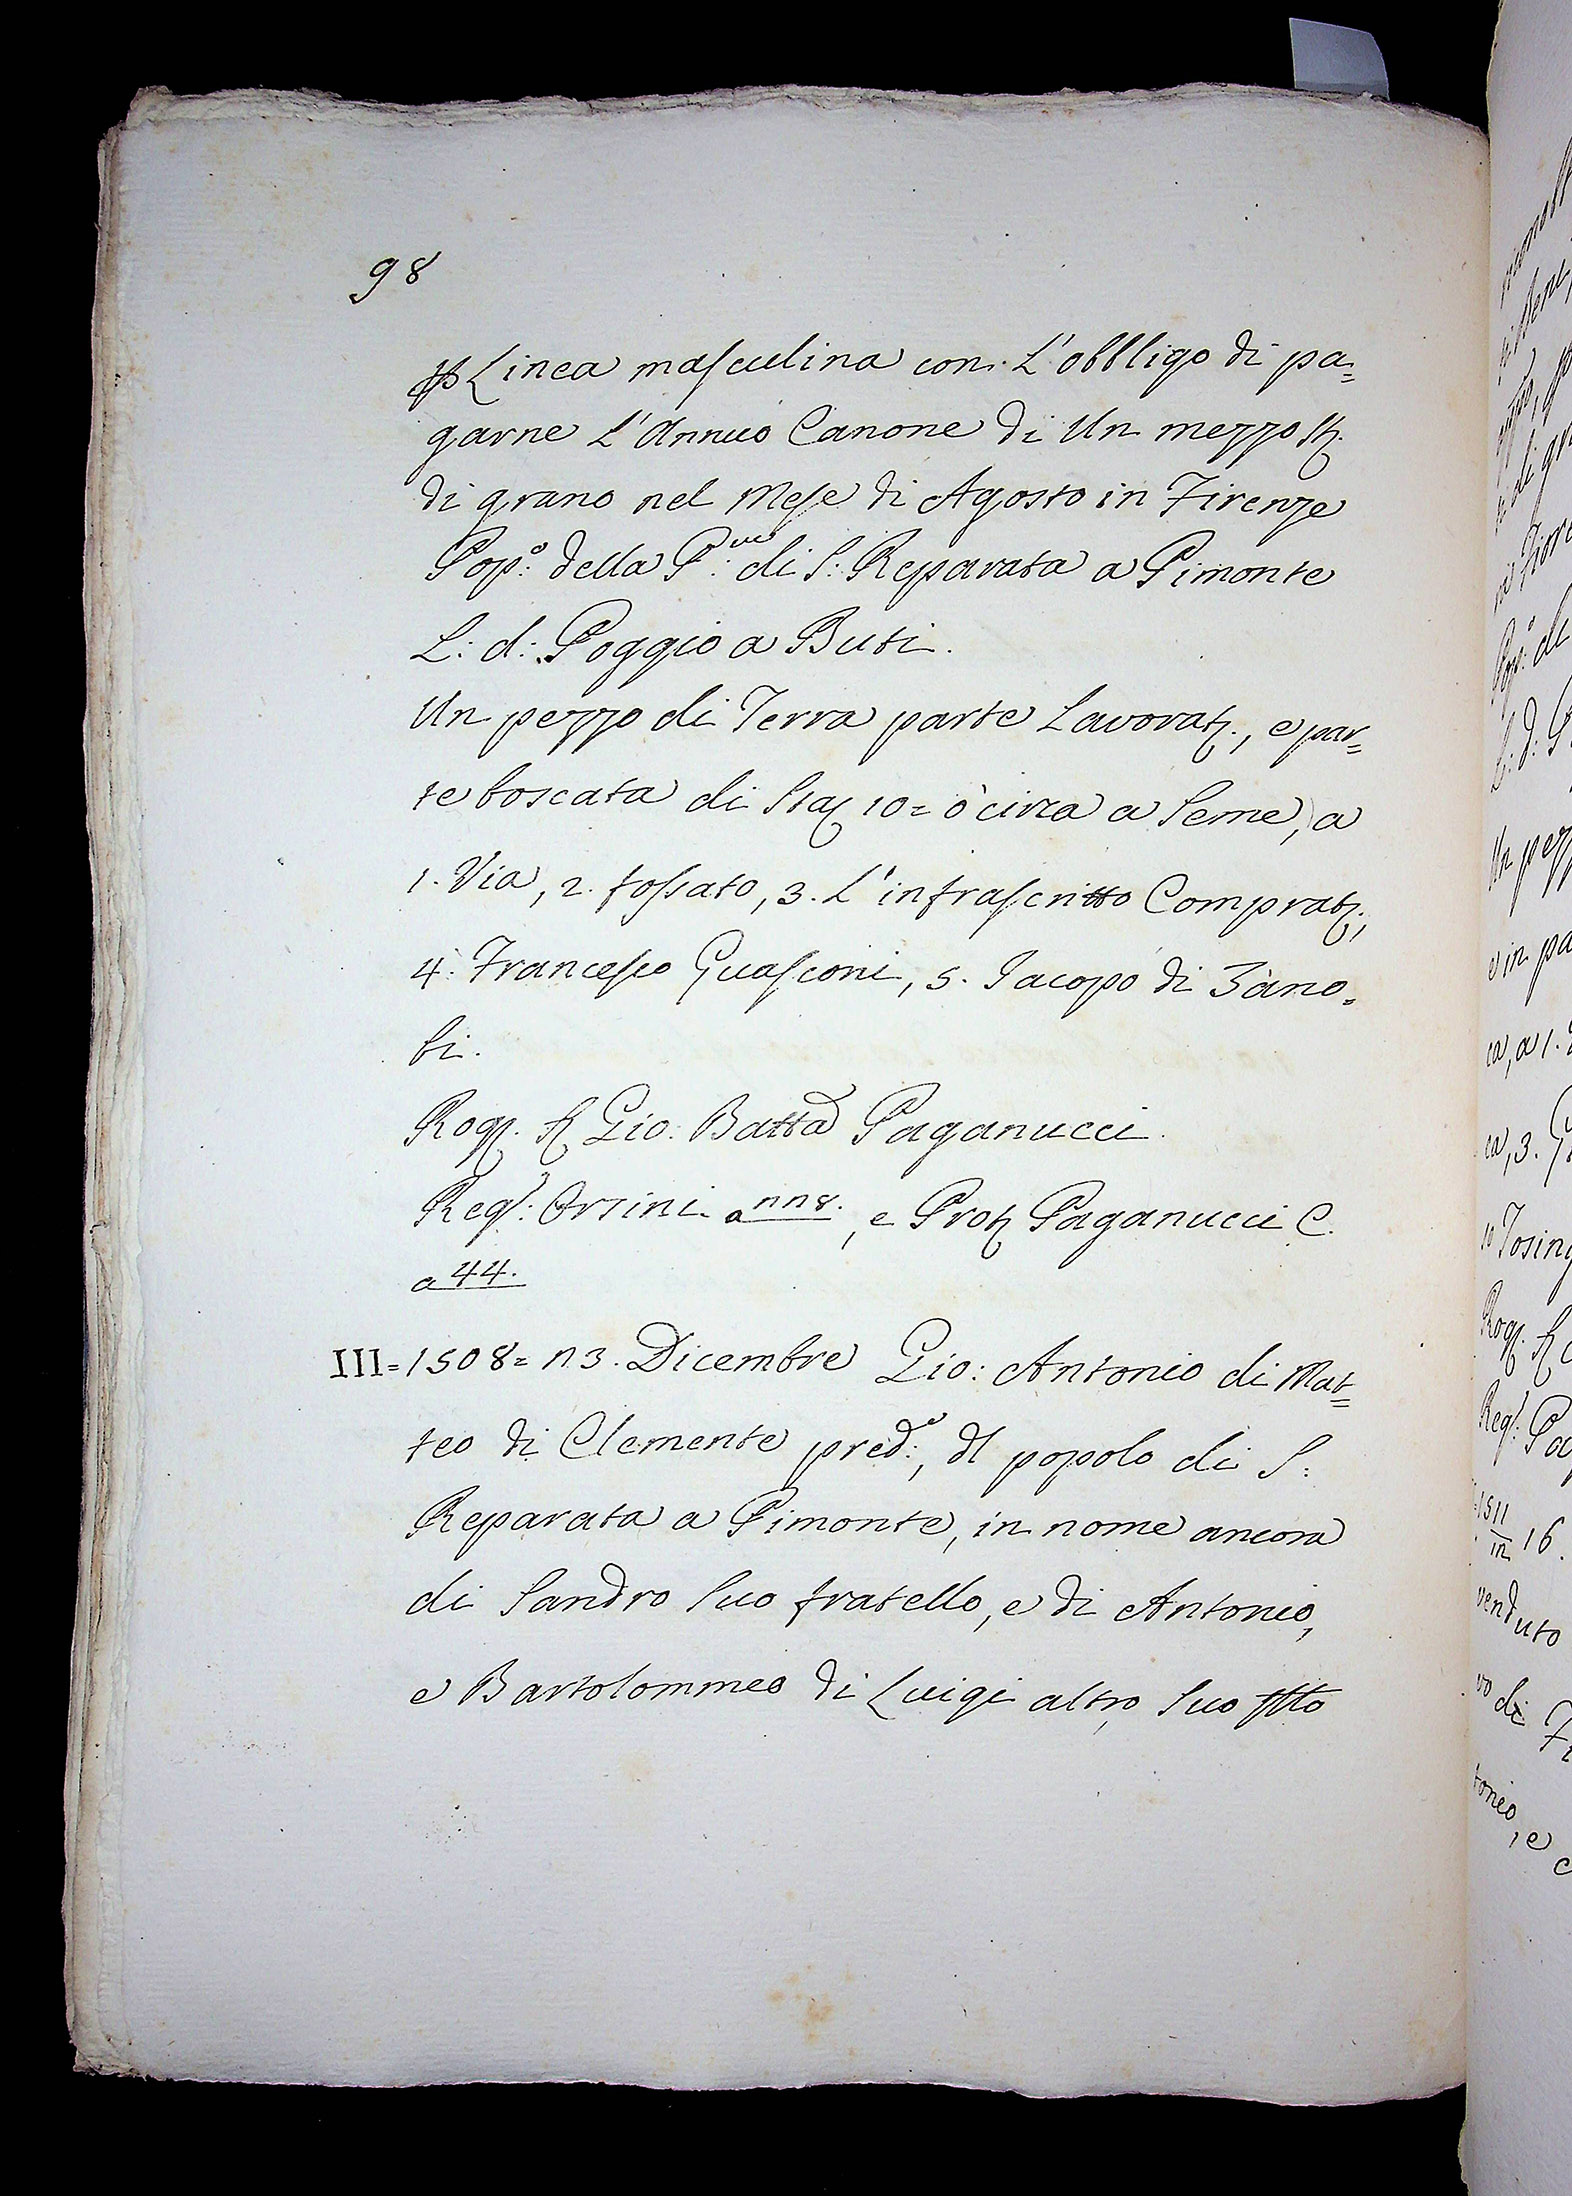 98
p Linea masculina con L'obbligo di pa=
garne L'Annuo Canone di Un mezzo st.
di grano nel Mese di Agosto in Firenze
Pop:o della P:ve di S: Reparata a Pimonte
L: d: Poggio a Buti.
Un pezzo di Terra parte Lavorat., e par=
te boscata di Sta 10= ò circa a Seme, a
1. Via, 2. fossato, 3. L'infrascritto Comprat.,
4. Francesco Guasconi, 5. Jacopo di Zano=
bi.
Rog. Gio: Batta Paganucci.
Reg: Orsini a 118., e Prot Paganucci C.
a 44.
III=1508= 13. Dicembre Gio: Antonio di Mat=
teo di Clemente pred:o, dl popolo di S:
Reparata a Pimonte, in nome ancora
di Sandro Suo fratello, e di Antonio,
e Bartolommeo di Luigi altro Suo fllo
Pop:o di
L: d: P
Un pez
e in pa
ca, a 1.
ca, 3. G
Rog.
Reg: Pa
1511
12 16.
venduto
vo di Fi
tonio, e